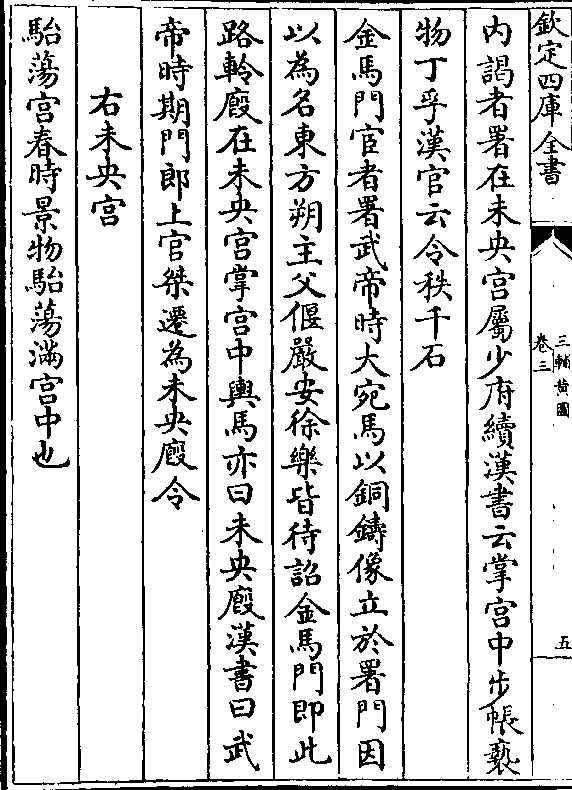 欽定四庫全書
三輔黄圖
卷三
五
内謁者署在未央宫屬少府續漢書云掌宫中步帳褻
物丁孚漢官云令秩千石
金馬門宦者署武帝時大宛馬以銅鑄像立於署門因
以為名東方朔主父偃嚴安徐樂皆待詔金馬門即此
路軨廄在未央宫掌宫中輿馬亦曰未央廄漢書曰武
帝時期門郎上官桀遷為未央廄令
右未央宫
駘蕩宫春時景物駘蕩滿宫中也